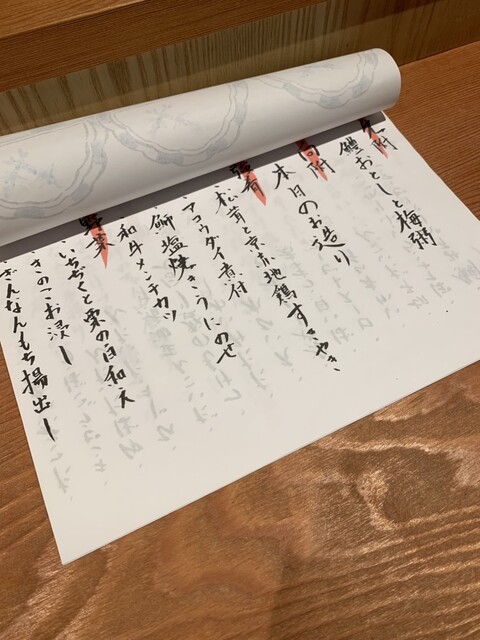 先附
鱧おとしと梅粥
向附
本日のお造り
強肴
・松茸と京赤地鶏すきやき
・アコウダイ煮付
・鰤塩焼き うにのせ
・和牛メンチカツ
野菜
・いちぢくと栗の白和え
・きのこお浸し
・ぎんなんもち揚出し